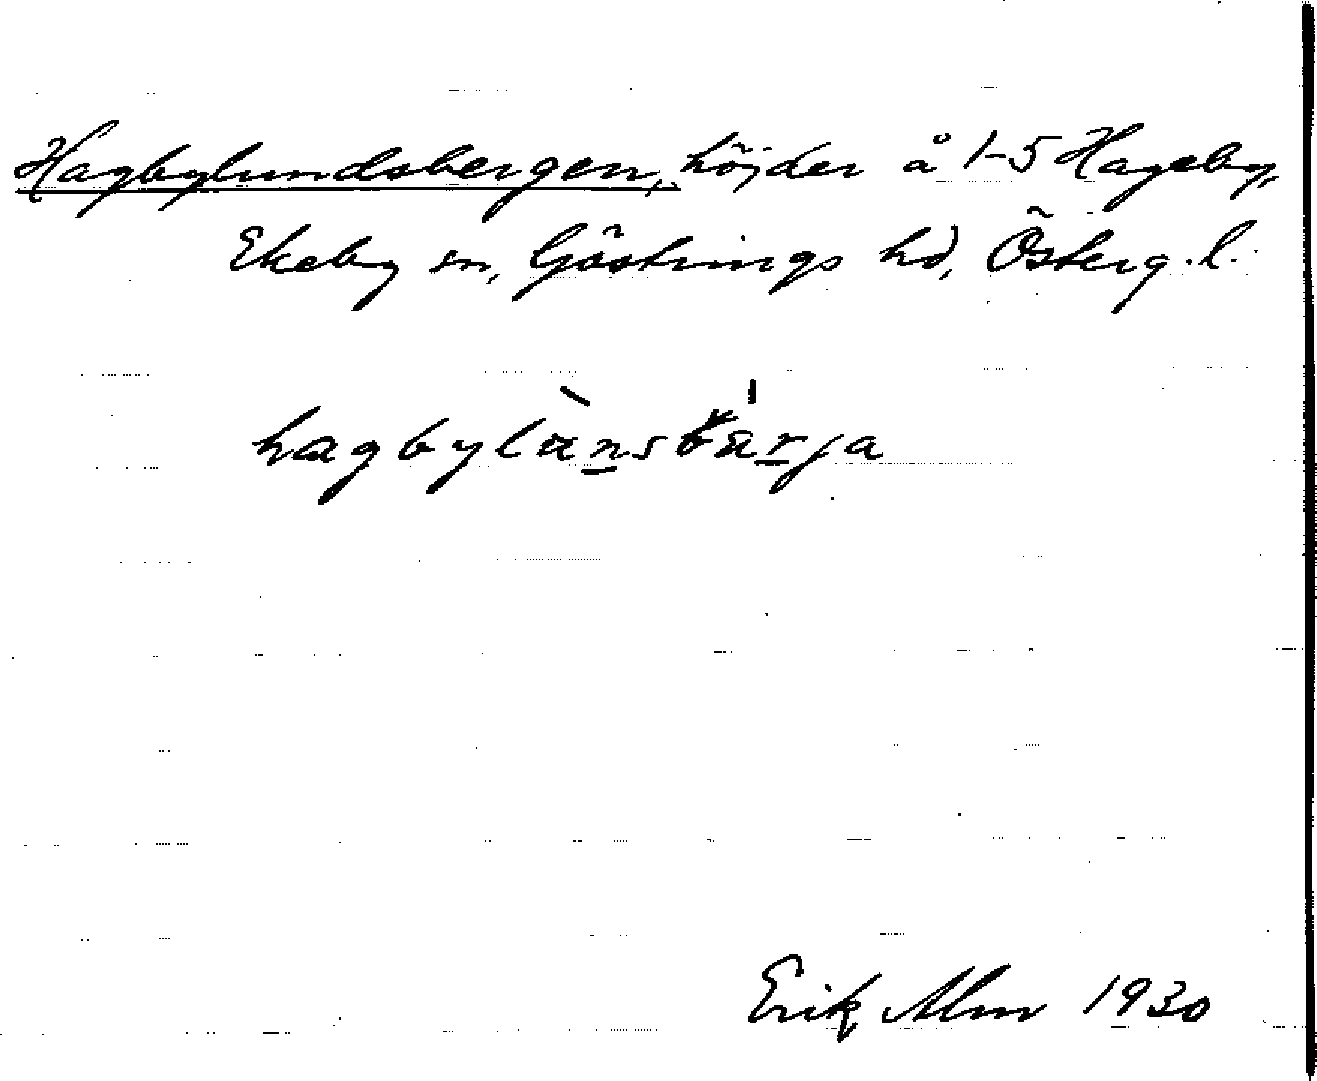 Hagbylundsbergen, höjder å 1-5 Hageby,
Ekeby sn, Göstrings hd, Österg. l.
hagbylànsbä́rja
Erik Alm 1930